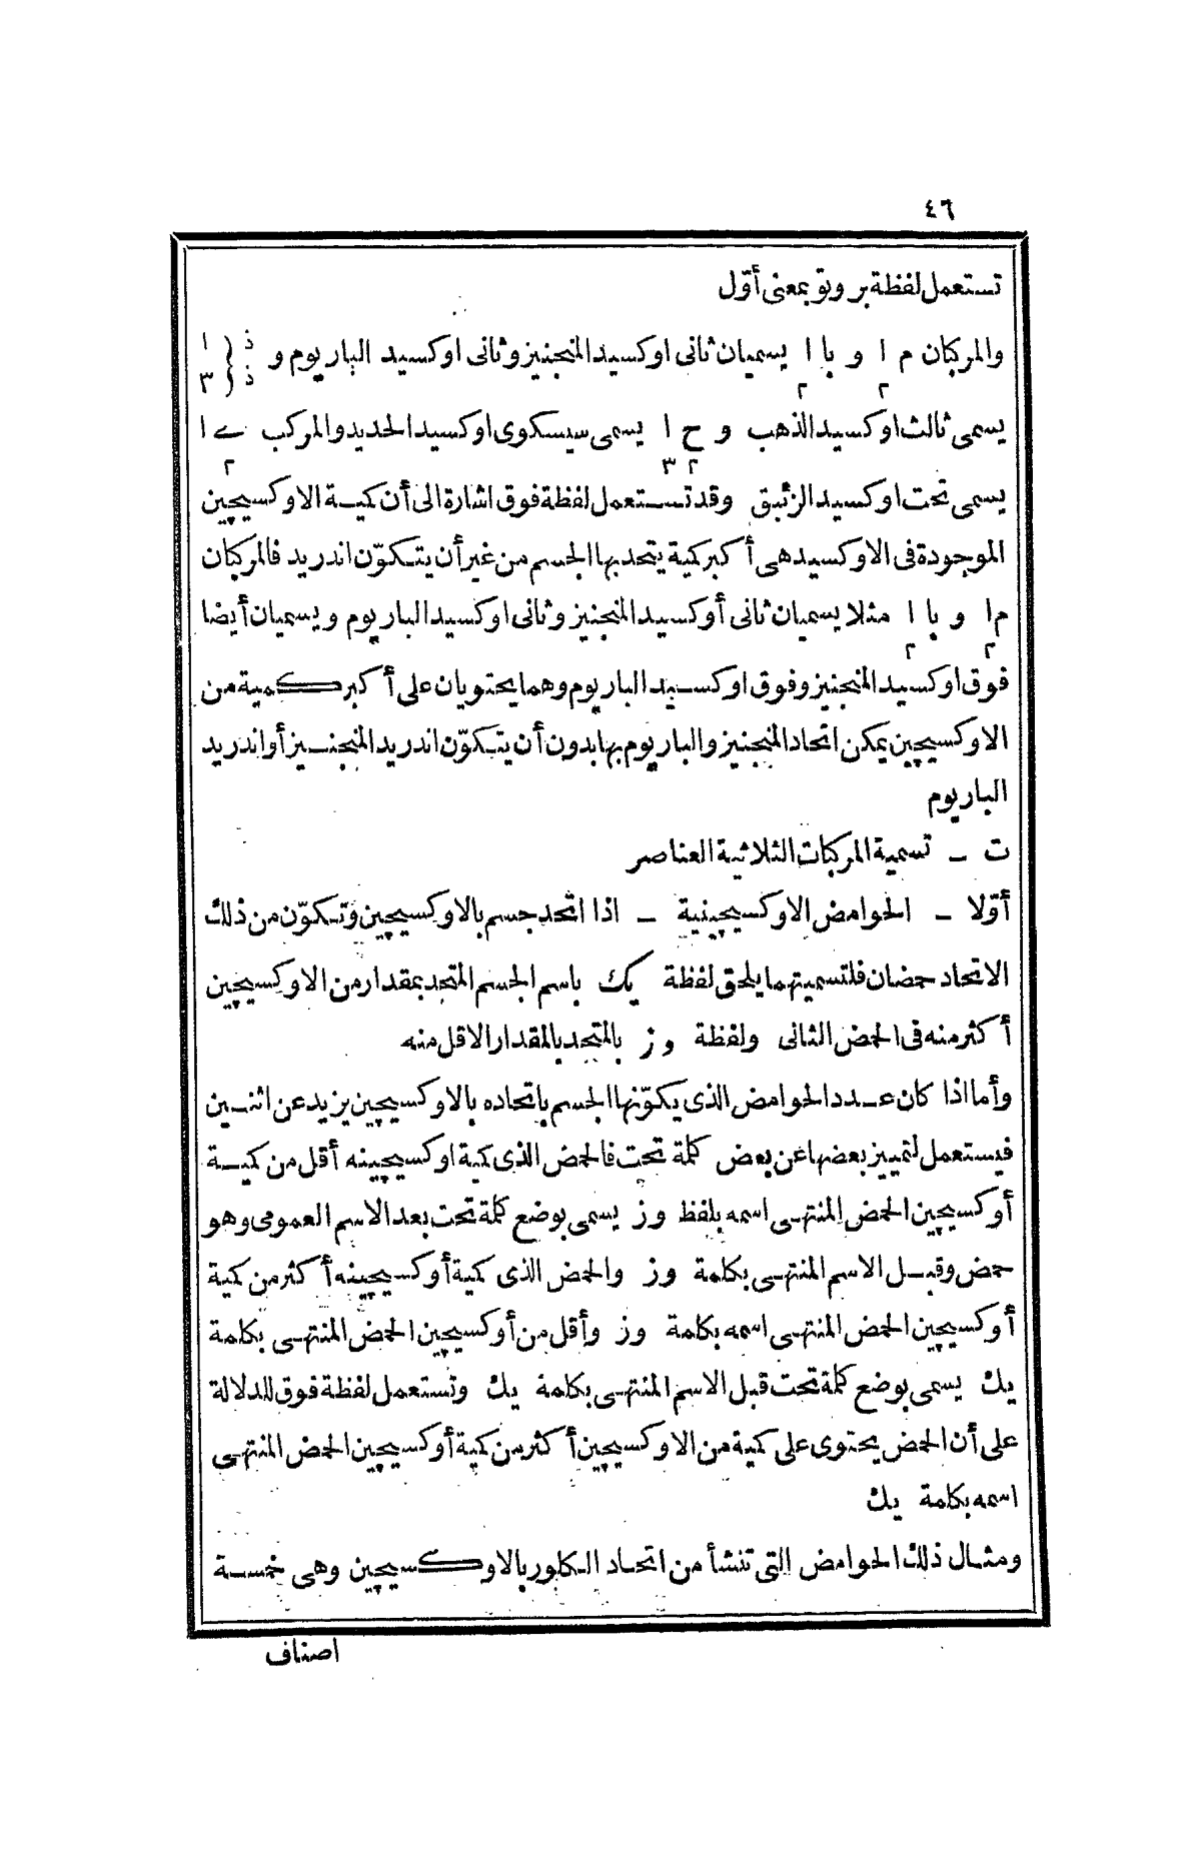 ٤٦
تستعمل لفظة بروتو بمعنى أوّل
والمركبان م ا٢ و با ا٢ يسميان ثانى اوكسيد المنجنيز وثانى اوكسيد الباريوم و ذ ذ } ا٣
يسمى ثالث اوكسيد الذهب و ح٢ ا٣ يسمى سيسكوى اوكسيد الحديد والمركب ے٢ ا
يسمى تحت اوكسيد الزئبق وقد تستعمل لفظة فوق اشارة الى أن كمية الاوكسيچين
الموجودة فى الاوكسيد هى أكبر كمية يتحد بها الجسم من غير أن يتكوّن اندريد فالمركبان
م ا٢ و با ا٢ مثلا يسميان ثانى أوكسيد المنجنيز وثانى اوكسيد الباريوم ويسميان أيضا
فوق اوكسيد المنجنيز وفوق اوكسيد الباريوم وهما يحتويان على أكبر كمية من
الاوكسيچين يمكن اتحاد المنجنيز والباريوم بها بدون أن يتكوّن اندريد المنجنيز أو اندريد
الباريوم
ت ـ تسمية المركبات الثلاثية العناصر
أوّلا ـ الحوامض الاوكسيچينية ـ اذا اتحد جسم بالاوكسيچين وتكوّن من ذلك
الاتحاد حمضان فلتسميتهما يلحق لفظة يك باسم الجسم المتحد بمقدار من الاوكسيچين
أكثر منه فى الحمض الثانى ولفظة وز بالمتحد بالمقدار الاقل منه
وأما اذا كان عدد الحوامض الذى يكوّنها الجسم باتحاده بالاوكسيچين يزيد عن اثنين
فيستعمل لتمييز بعضها عن بعض كلمة تحت فالحمض الذى كمية اوكسيچينه أقل من كمية
أوكسيچين الحمض المنتهى اسمه بلفظ وز يسمى بوضع كلمة تحت بعد الاسم العمومى وهو
حمض وقبل الاسم المنتهى بكلمة وز والحمض الذى كمية أوكسيچينه أكثر من كمية
أوكسيچين الحمض المنتهى اسمه بكلمة وز وأقل من أوكسيچين الحمض المنتهى بكلمة
يك يسمى بوضع كلمة تحت قبل الاسم المنتهى بكلمة يك وتستعمل لفظة فوق للدلالة
على أن الحمض يحتوى على كمية من الاوكسيچين أكثر من كمية أوكسيچين الحمض المنتهى
اسمه بكلمة يك
ومثال ذلك الحوامض التى تنشأ من اتحاد الكلور بالاوكسيچين وهى خمسة
اصناف